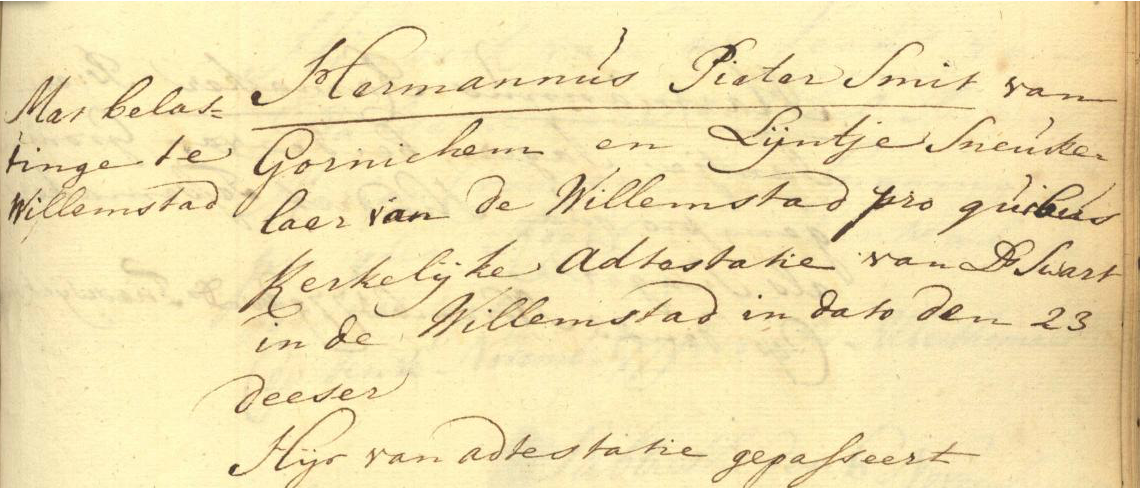 Mat belas=
tinge te
Willemstad
Hermannus Pieter Smit van
Gorinchem en Lijntje Sneuke-
laer van de Willemstad pro quibus
Kerkelijke Adtestatie van Ds Swart
in de Willemstad in dato den 23
deeser
Hijr van adtestatie gepasseert